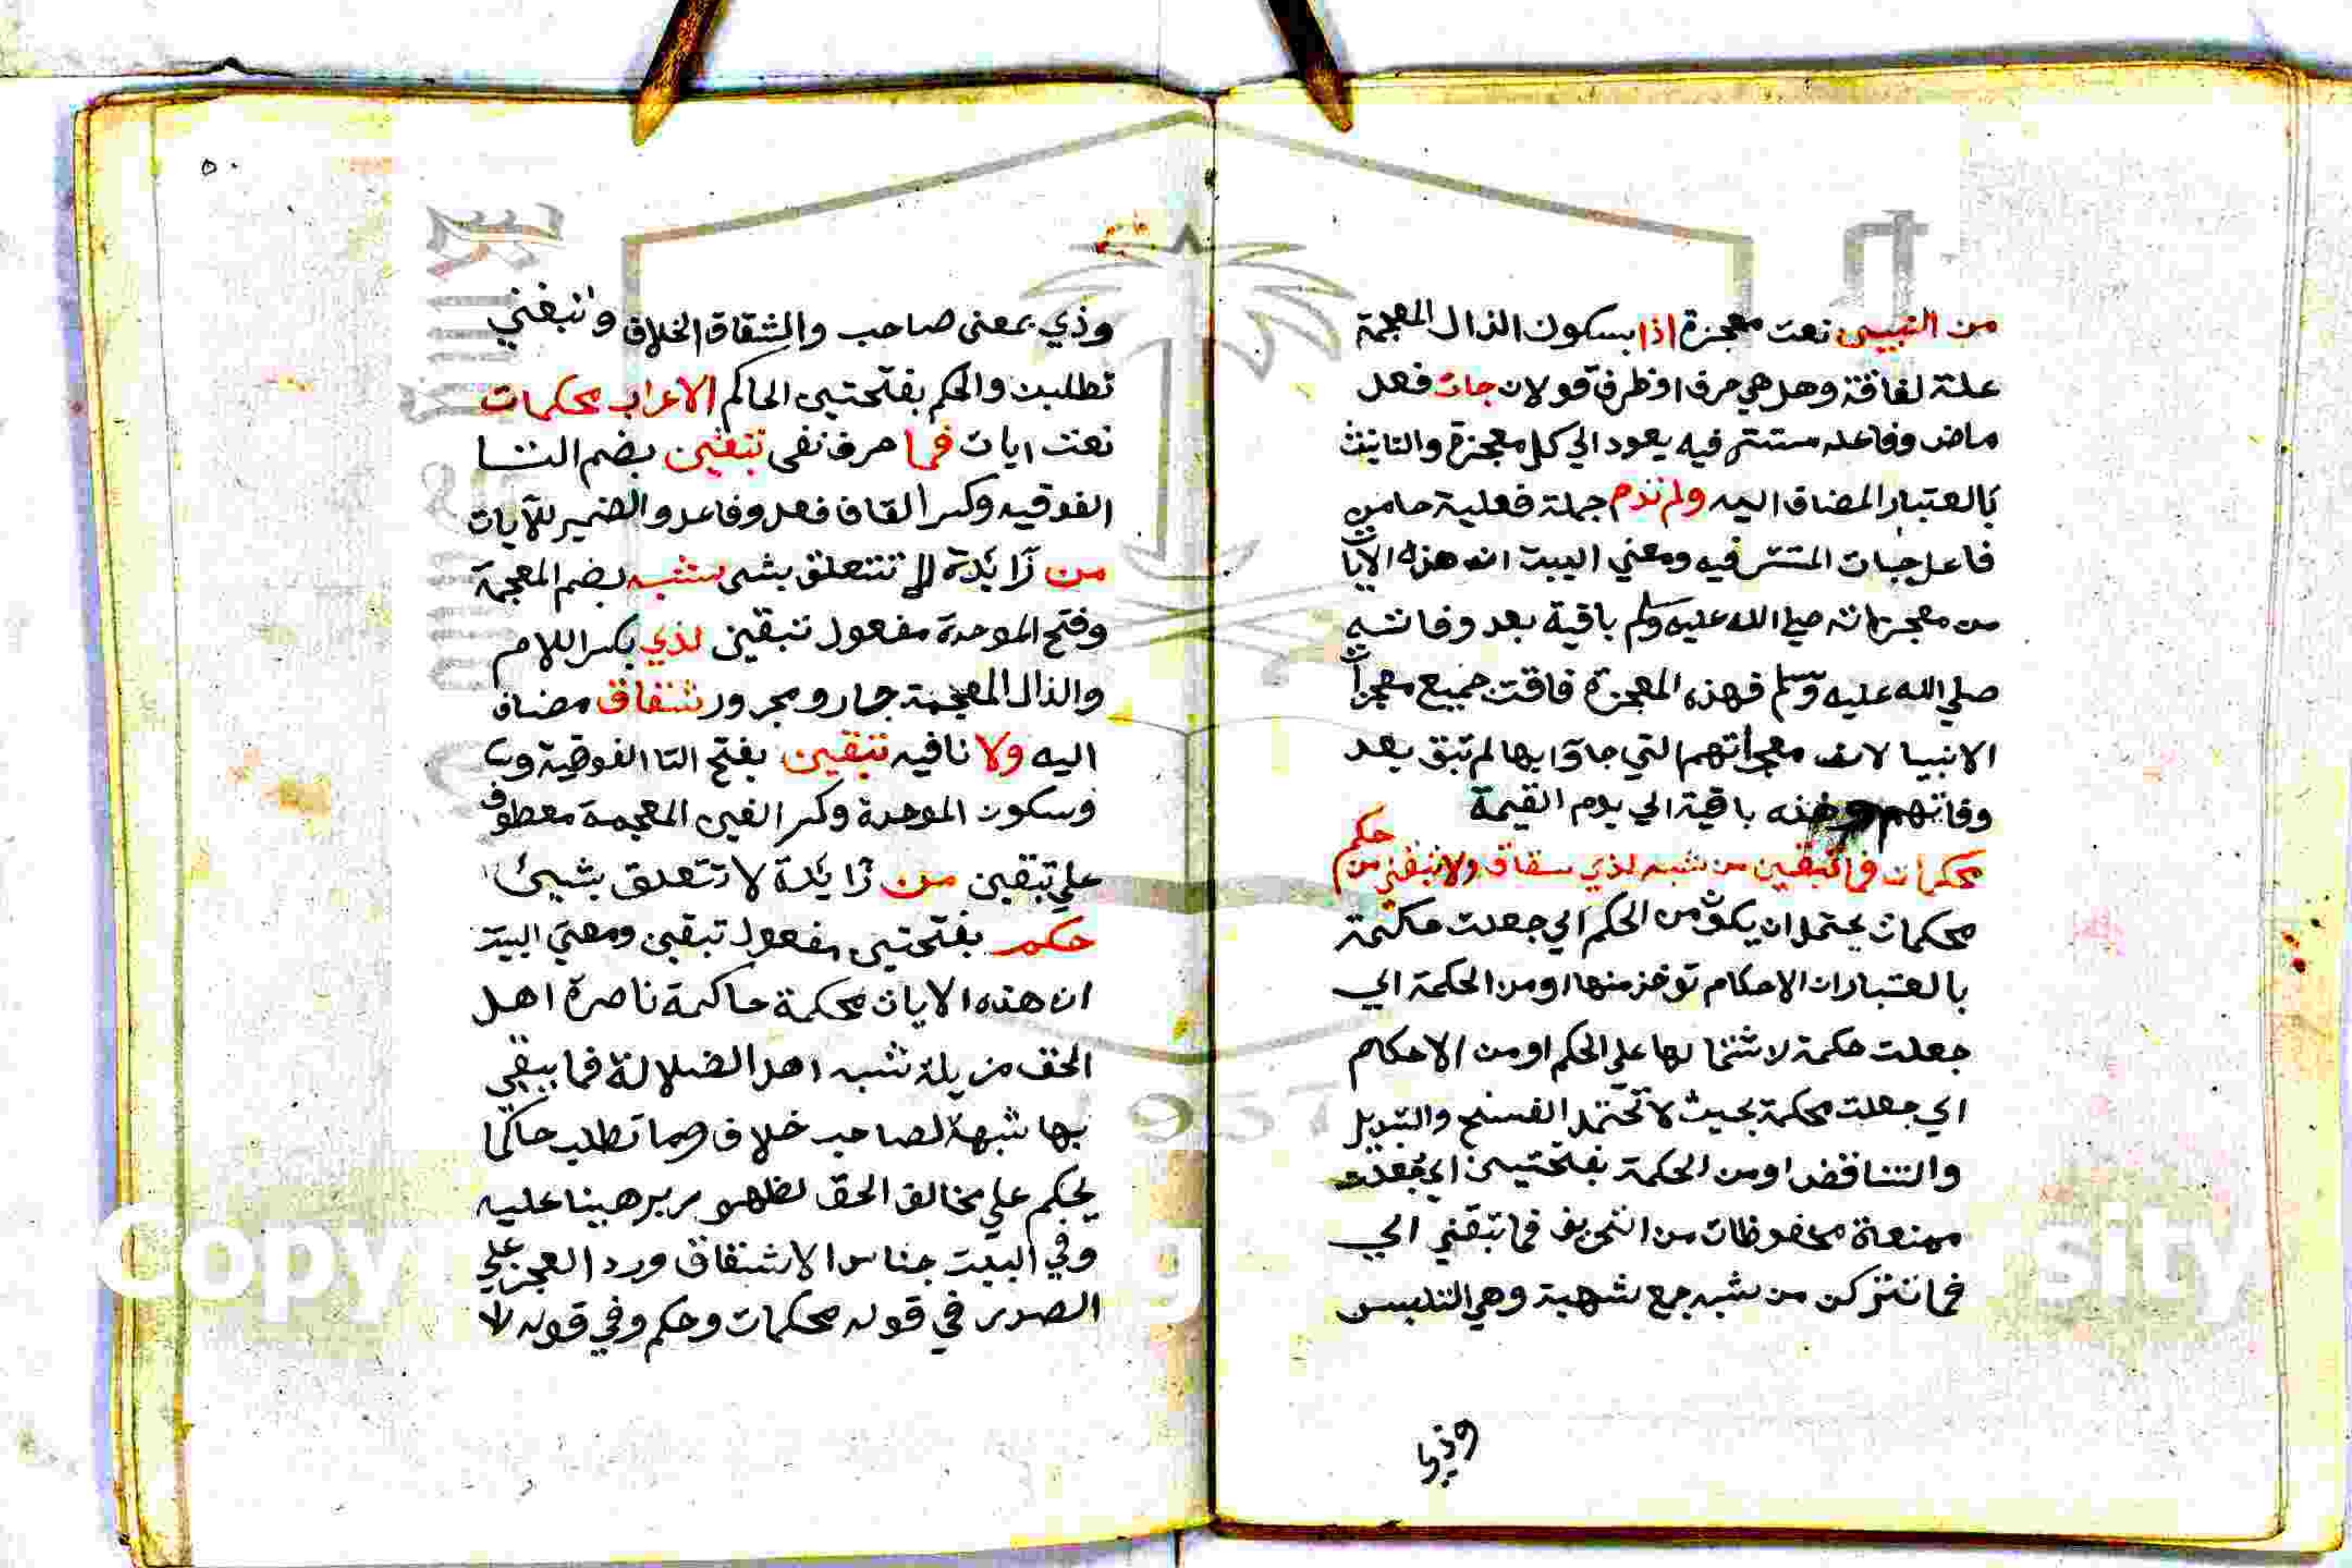 من النبيين نعت معجزة اذا بسكون الذال المعجمة
علة لفاقة وهل هي حرف او ظرف قولان جات فعل
ماض وفاعله مستتر فيه يعود الي كل معجزة والتانيث
بالعتبار المضاف اليه ولم تدم جملة فعلية حا من
فاعل جات المتتر فيه ومعني البيت ان هذه الايات
من معجزاته صلي الله عليه وسلم باقية بعد وفاته
صلي الله عليه وسلم فهذه المعجزة فاقت جميع معجزات
الانبيا لان معجزاتهم التي جاوا بها لم تبق بعد
وفاتهم وهذه باقية الي يوم القيمة
محكمات فما تبقين من شبه لذي شقاق ولا تبغين من حكم
محكمات يحتمل ان يكون من الحكم اي جعلت حكمة
بالعتبار ان الاحكام توخذ منها او من الحكمة اي
جعلت حكمة لاشتمالها علي الحكم او من الاحكام
اي جعلت محكمة بحيث لا تحتمل الفسخ والتبديل
والتناقض او من الحكمة بفتحتين اي جعلت
ممنعة محفوظات من التحريف فما تبقين اي
فما تتركن من شبه جمع شهبة وهي التلبيس
وذي
٥٠
وذي بمعني صاحب والشقاق الخلاف وتبغين
تطلبن والحكم بفتحتين الحاكم الاعراب محكمات
نعت ايات فما حرف نفي تبقين بضم التا
الفوقيه وكسر القاف فعل وفاعل والضمير للآيات
من زايدة لا تتعلق بشي شبه بضم المعجمة
وفتح الموحدة مفعول تبقين لذي بكسر اللام
والذال المعجمة جار ومجرور شقاق مضاف
اليه ولا نافيه تبغين بفتح التا الفوقية
وسكون الموحدة وكسر الغين المعجمة معطوف
علي تبقين من زايدة لا تتعلق بشيئ
حكم بفتحتين مفعول تبقين ومعني البيت
ان هذه الايات محكمة حاكمة ناصرة اهل
الحق مزيلة شبه اهل الضلالة فما يبقي
بها شبهة لصاحب خلاف وما تطلب حاكما
يحكم علي مخالف الحق لظهور برهينا عليه
وفي البيت جناس الاشتقاق ورد العجز علي
الصدر في قوله محكمات وحكم وفي قوله لا